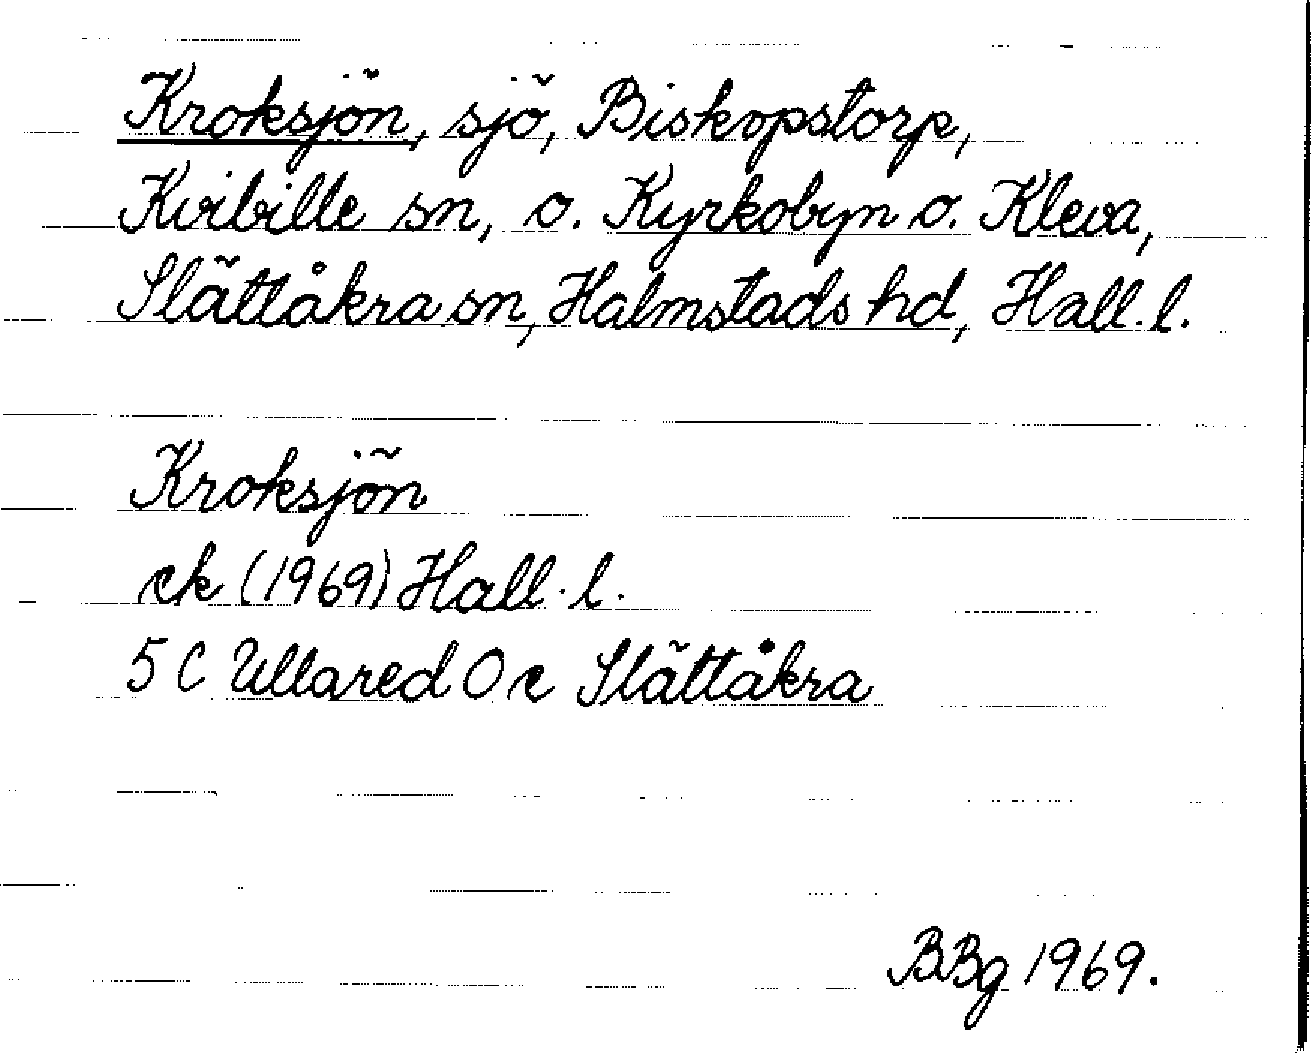 Kroksjön, sjö, Biskopstorp,
Kvibille sn, o. Kyrkobyn o. Kleva,
Slättåkra sn, Halmstads hd, Hall. l.
Kroksjön
ek (1969) Hall. l.
5 C Ullared O e Slättåkra
BBg 1969.